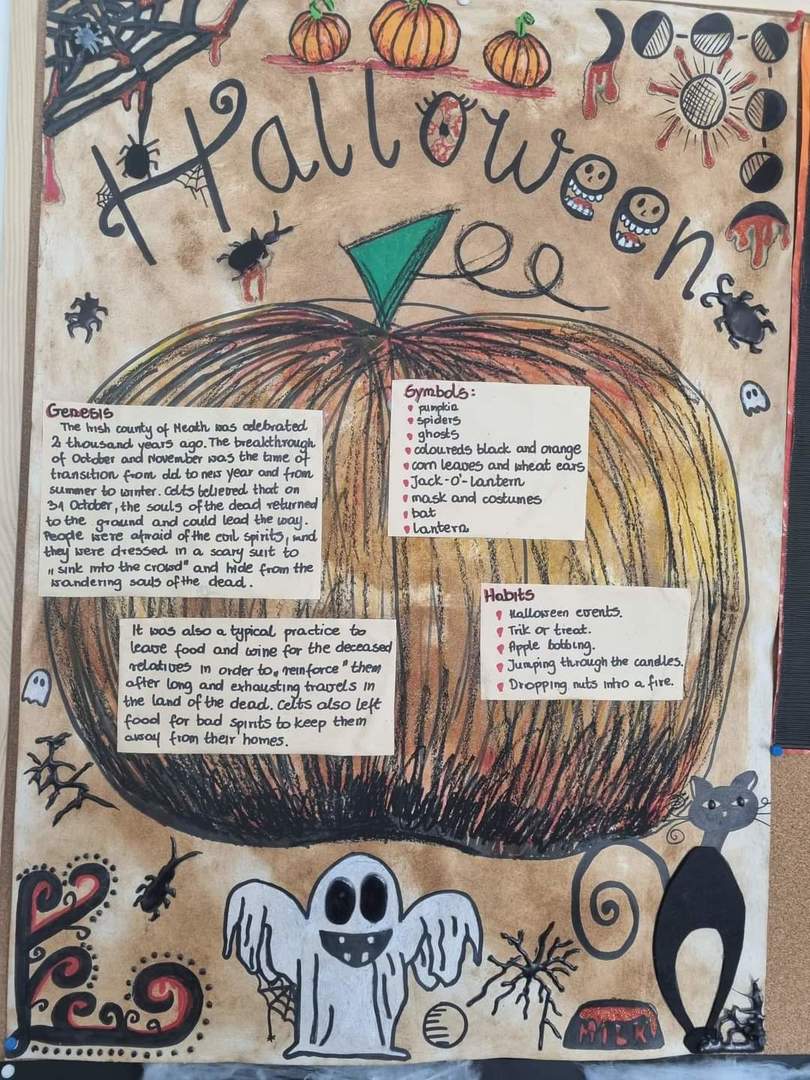 Halloween
Genesis
The Irish county of Meath was celebrated
2 thousand years ago. The breakthrough
of October and November was the time of
transition from old to new year and from
summer to winter. Celts believed that on
31 October, the souls of the dead returned
to the ground and could lead the way.
People were afraid of the evil spirits, and
they were dressed in a scary suit to
„sink into the crowd" and hide from the
wandering souls of the dead.
It was also a typical practice to
leave food and wine for the deceased
relatives in order to „reinforce" them
after long and exhausting travels in
the land of the dead. Celts also left
food for bad spirits to keep them
away from their homes.
Symbols:
pumpkin
spiders
ghosts
coloureds black and orange
corn leaves and wheat ears
Jack-O'-lantern
mask and costumes
bat
lantern
Habits
Halloween events.
Trik or treat.
Apple bobbing.
Jumping through the candles.
Dropping nuts into a fire.
MILK